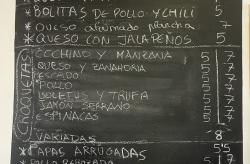 * BOLITAS DE POLLO Y CHILI 5
* QUESO ahumado plancha 7
* QUESO CON JALAPEÑOS 5
CROQUETAS
COCHINO Y MANZANA 5 7
QUESO Y ZANAHORIA 5 7
PESCADO 5 7
POLLO 5 7
BOLETUS Y TRUFA 5 7
JAMÓN SERRANO 5 7
ESPINACAS 5 7
VARIADAS 8
* PAPAS ARRUGADAS 5'5